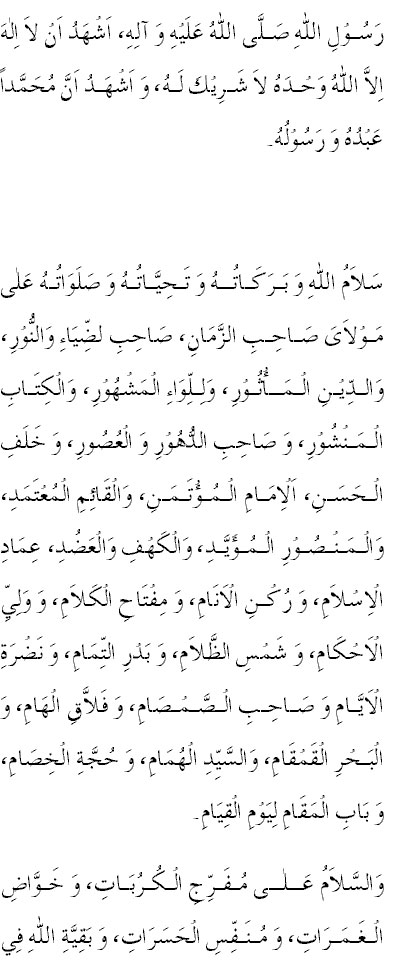 رَسُوْلِ اللهِ صَلَّى اللهُ عَلَيْهِ وَ آلِهِ، اَشْهَدُ اَنْ لاَ اِلٰهَ
اِلاَّ اللهُ وَحْدَهُ لاَ شَرِيْكَ لَهُ، وَ اَشْهَدُ اَنَّ مُحَمَّداً
عَبْدُهُ وَ رَسُوْلُهُ.
سَلاَمُ اللهِ وَ بَرَكَاتُهُ وَ تَحِيَّاتُهُ وَ صَلَوَاتُهُ عَلٰى
مَوْلاَىَ صَاحِبِ الزَّمَانِ، صَاحِبِ لضِّيَاءِ وَالنُّوْرِ،
وَالدِّيْنِ الْمَأْثُوْرِ، وَلِلِّوَاءِ الْمَشْهُوْرِ، وَالْكِتَابِ
الْمَنْشُوْرِ، وَ صَاحِبِ الدُّهُوْرِ وَ الْعُصُورِ، وَ خَلَفِ
الْحَسَنِ، اَلْاِمَامِ الْمُؤْتَمَنِ، وَالْقَائِمِ الْمُعْتَمَدِ،
وَالْمَنْصُوْرِ الْمُؤَيَّدِ، وَالْكَهْفِ وَالْعَضُدِ، عِمَادِ
الْاِسْلاَمِ، وَ رُكْنِ الْاَنَامِ، وَ مِفْتَاحِ الْكَلاَمِ، وَ وَلِيِّ
الْاَحْكَامِ، وَ شَمْسِ الظَّلاَمِ، وَ بَدْرِ التِّمَامِ، وَ نَضْرَةِ
الْاَيَّامِ وَ صَاحِبِ الْصَّمْصَامِ، وَ فَلاَّقِ الْهَامِ، وَ
الْبَحْرِ الْقَمْقَامِ، وَالسَّيِّدِ الْهُمَامِ، وَ حُجَّةِ الْخِصَامِ،
وَ بَابِ الْمَقَامِ لِيَوْمِ الْقِيَامِ.
وَالسَّلاَمُ عَلٰى مُفَرِّجِ الْكُرُبَاتِ، وَ خَوَّاضِ
الْغَمَرَاتِ، وَ مُنَفِّسِ الْحَسَرَاتِ، وَ بَقِيَّةِ اللهِ فِي